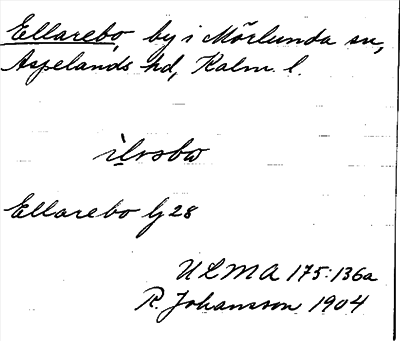 Ellarebo, by i Mörlunda sn,
Aspelands hd, Kalm. l.
Ellarebo bj 28
ULMA 175:136a
R. Johansson 1904